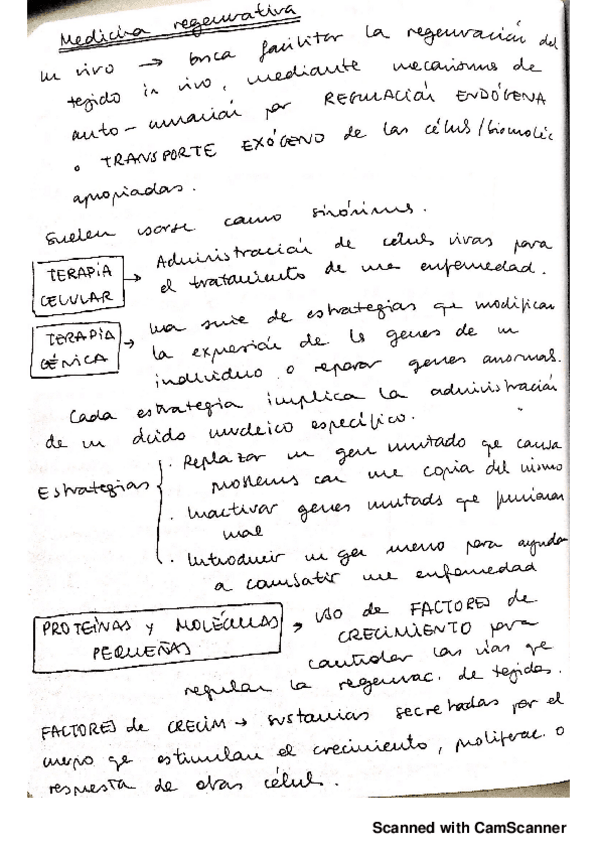 Medicina regenerativa
In vivo → busca facilitar la regeneración del
tejido in vivo, mediante mecanismos de
auto-curación por REGULACIÓN ENDÓGENA
o TRANSPORTE EXÓGENO de las céluls/biomoléc
apropiadas.
Suelen usarse como sinónimos.
TERAPIA CELULAR → Administración de céluls vivas para
el tratamiento de una enfermedad.
TERAPIA GÉNICA → Una serie de estrategias que modifican
la expresión de ls genes de un
individuo o reparar genes anormas.
Cada estrategia implica la administración
de un ácido nucleico específico.
Estrategias { · Replazar un gen mutado que causa
problems con una copia del mismo
· Inactivar genes mutads que funcionan
mal
· Introducir un gen nuevo para ayudar
a combatir una enfermedad
PROTEÍNAS y MOLÉCULAS PEQUEÑAS → USO de FACTORES de
CRECIMIENTO para
controlar las vías que
regulan la regenerac. de tejidos.
FACTORES de CRECIM → sustancias secretadas por el
cuerpo que estimulan el crecimiento, proliferac. o
respuesta de otras célul.
Scanned with CamScanner